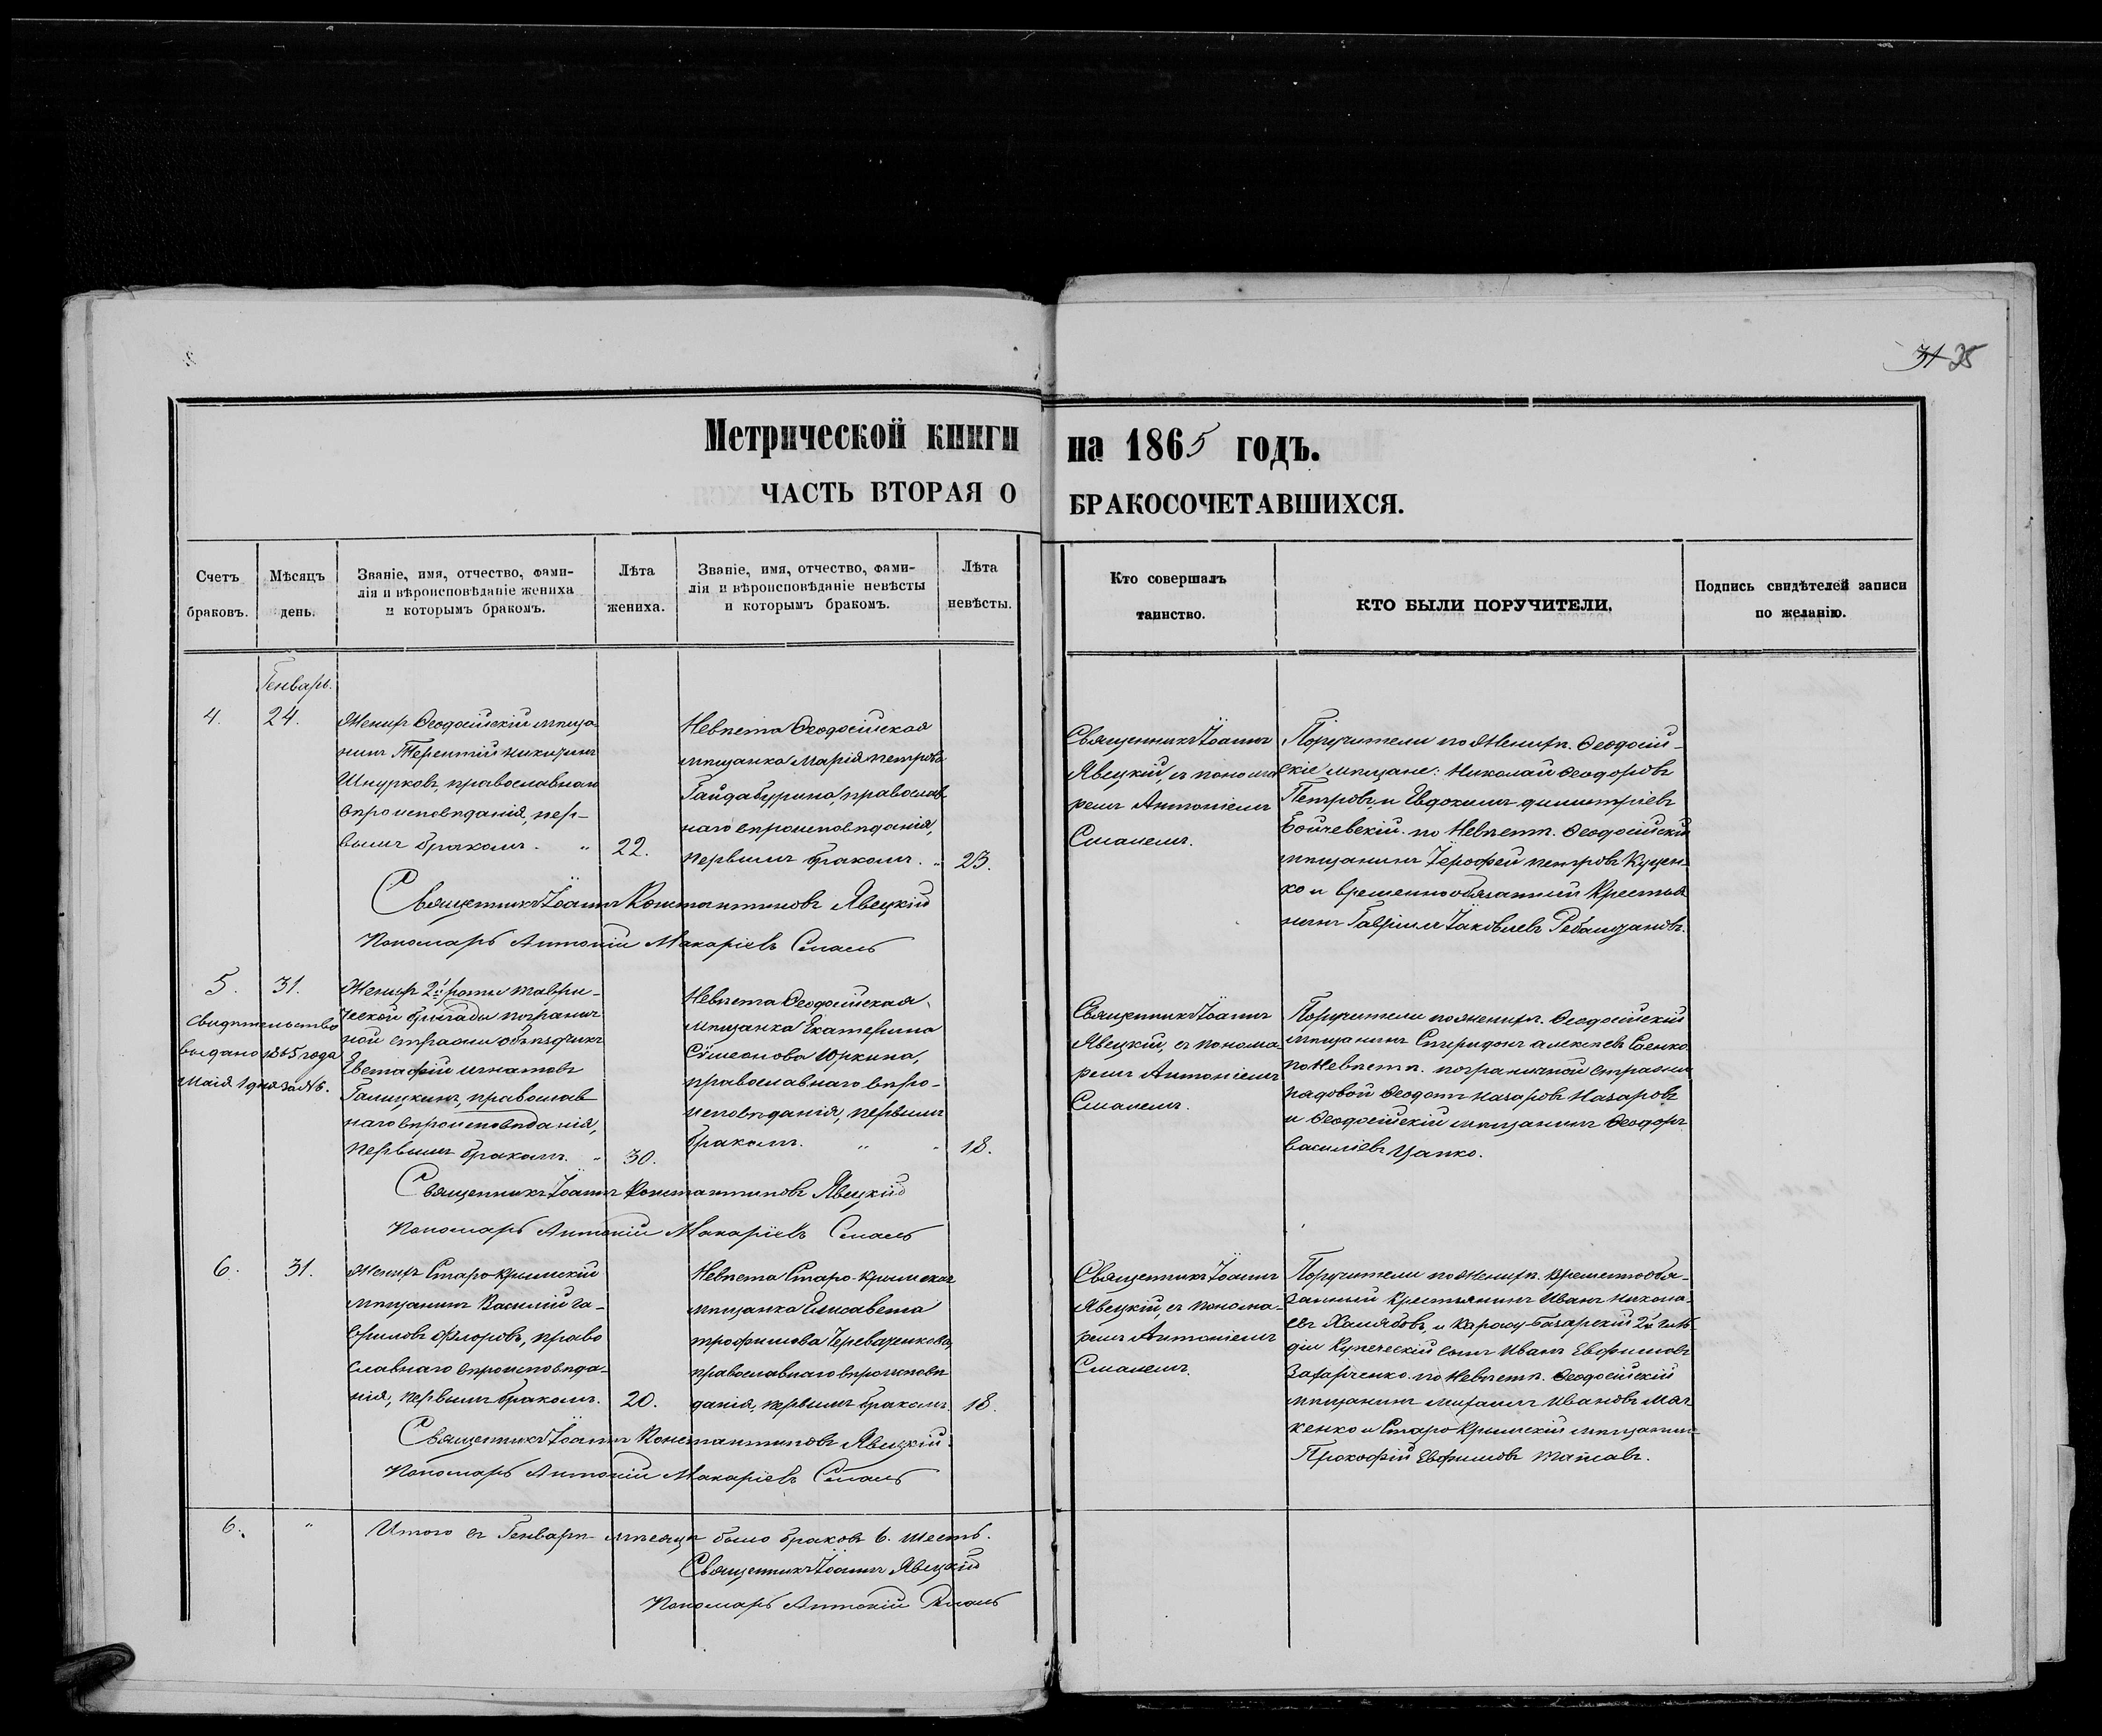 31 35
Метрической книги на 1865 годъ.
ЧАСТЬ ВТОРАЯ О БРАКОСОЧЕТАВШИХСЯ.
Счетъ браковъ.
Мѣсяцъ день.
Званіе, имя, отчество, фами-
лія и вѣроисповѣданіе жениха
и которымъ бракомъ.
Лѣта жениха.
Званіе, имя, отчество, фами-
лія и вѣроисповѣданіе невѣсты
и которымъ бракомъ.
Лѣта невѣсты.
Кто совершалъ
таинство.
КТО БЫЛИ ПОРУЧИТЕЛИ.
Подпись свидѣтелей записи
по желанію.
Генварь.
4.
24.
Женихъ Ѳеодосійскій мѣща-
нинъ Терентій Никитинъ
Шнурковъ, православнаго
вѣроисповѣданія, пер-
вымъ бракомъ. "
22.
Невѣста Ѳеодосійская
мѣщанка Марія Петрова
Гайдабурина, православ
наго вѣроисповѣданія,
первымъ бракомъ. "
23.
Священникъ Іоаннъ
Явецкій, съ понома
ремъ Антоніемъ
Смалемъ.
Поручители по Женихѣ. Ѳеодосій-
скіе мѣщане: Николай Ѳеодоровъ
Петровъ, и Евдокимъ Димитріевъ
Бойчевскій. по Невѣстѣ. Ѳеодосійскій
мѣщанинъ Іерофей Петровъ Куцен-
ко и временнообязанный Крестья
нинъ Гавріилъ Іаковлевъ
Священникъ Іоаннъ Константиновъ Явецкій
Пономарь Антоній Макаріевъ Смаль
5.
31.
Свидѣтельство
выдано 1865 года
Маія 1 дня за № 6.
Женихъ 2й роты Таври-
ческой бригады погранич
ной стражи объѣздчикъ
Евстафій Игнатовъ
Галицкинъ, православ
наго вѣроисповѣданія,
первымъ бракомъ. "
30.
Невѣста Ѳеодосійская
мѣщанка Екатерина
Сѵмеонова Юркина,
православнаго вѣро-
исповѣданія, первымъ
бракомъ. " "
18.
Священникъ Іоаннъ
Явецкій, съ понома-
ремъ Антоніемъ
Смалемъ.
Поручители по женихѣ. Ѳеодосійскій
мѣщанинъ Спиридонъ Алексѣевъ Саенко.
по Невѣстѣ. пограничной стражи
рядовой Ѳеодотъ Назаровъ Назаровъ
и Ѳеодосійскій мѣщанинъ Ѳеодоръ
Василіевъ Цапко.
Священникъ Іоаннъ Константиновъ Явецкій
Пономарь Антоній Макаріевъ Смаль
6.
31.
Женихъ Старо-Крымскій
мѣщанинъ Василій Га-
вриловъ Флоровъ, право
славнаго вѣроисповѣда-
нія, первымъ бракомъ.
20.
Невѣста Старо-Крымская
мѣщанка Елисавета
Трофимова Череваренкова,
православнаго вѣроисповѣ
данія, первымъ бракомъ.
18.
Священникъ Іоаннъ
Явецкій, съ понома-
ремъ Антоніемъ
Смалемъ.
Поручители по Женихѣ. временнообя-
занный Крестьянинъ Иванъ Никола-
евъ Холябовъ, и Карасу-Базарскій 2й гиль-
діи Купеческій сынъ Иванъ Евфимовъ
Захарченко. по Невѣстѣ. Ѳеодосійскій
мѣщанинъ Михаилъ Ивановъ
кенко и Старо Крымскій мѣщанин-
Прокофій Евфимовъ
Священникъ Іоаннъ Константиновъ Явецкій.
Пономарь Антоній Макаріевъ Смаль
6.
"
Итого въ Генварѣ мѣсяцѣ было браковъ 6. шесть.
Священникъ Іоаннъ Явецкій
Пономарь Антоній Смаль